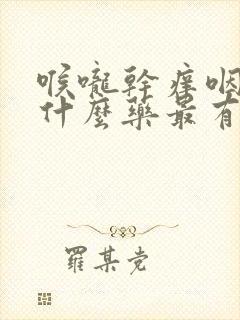 喉嚨幹癢咽
什麼藥最有
羅某党